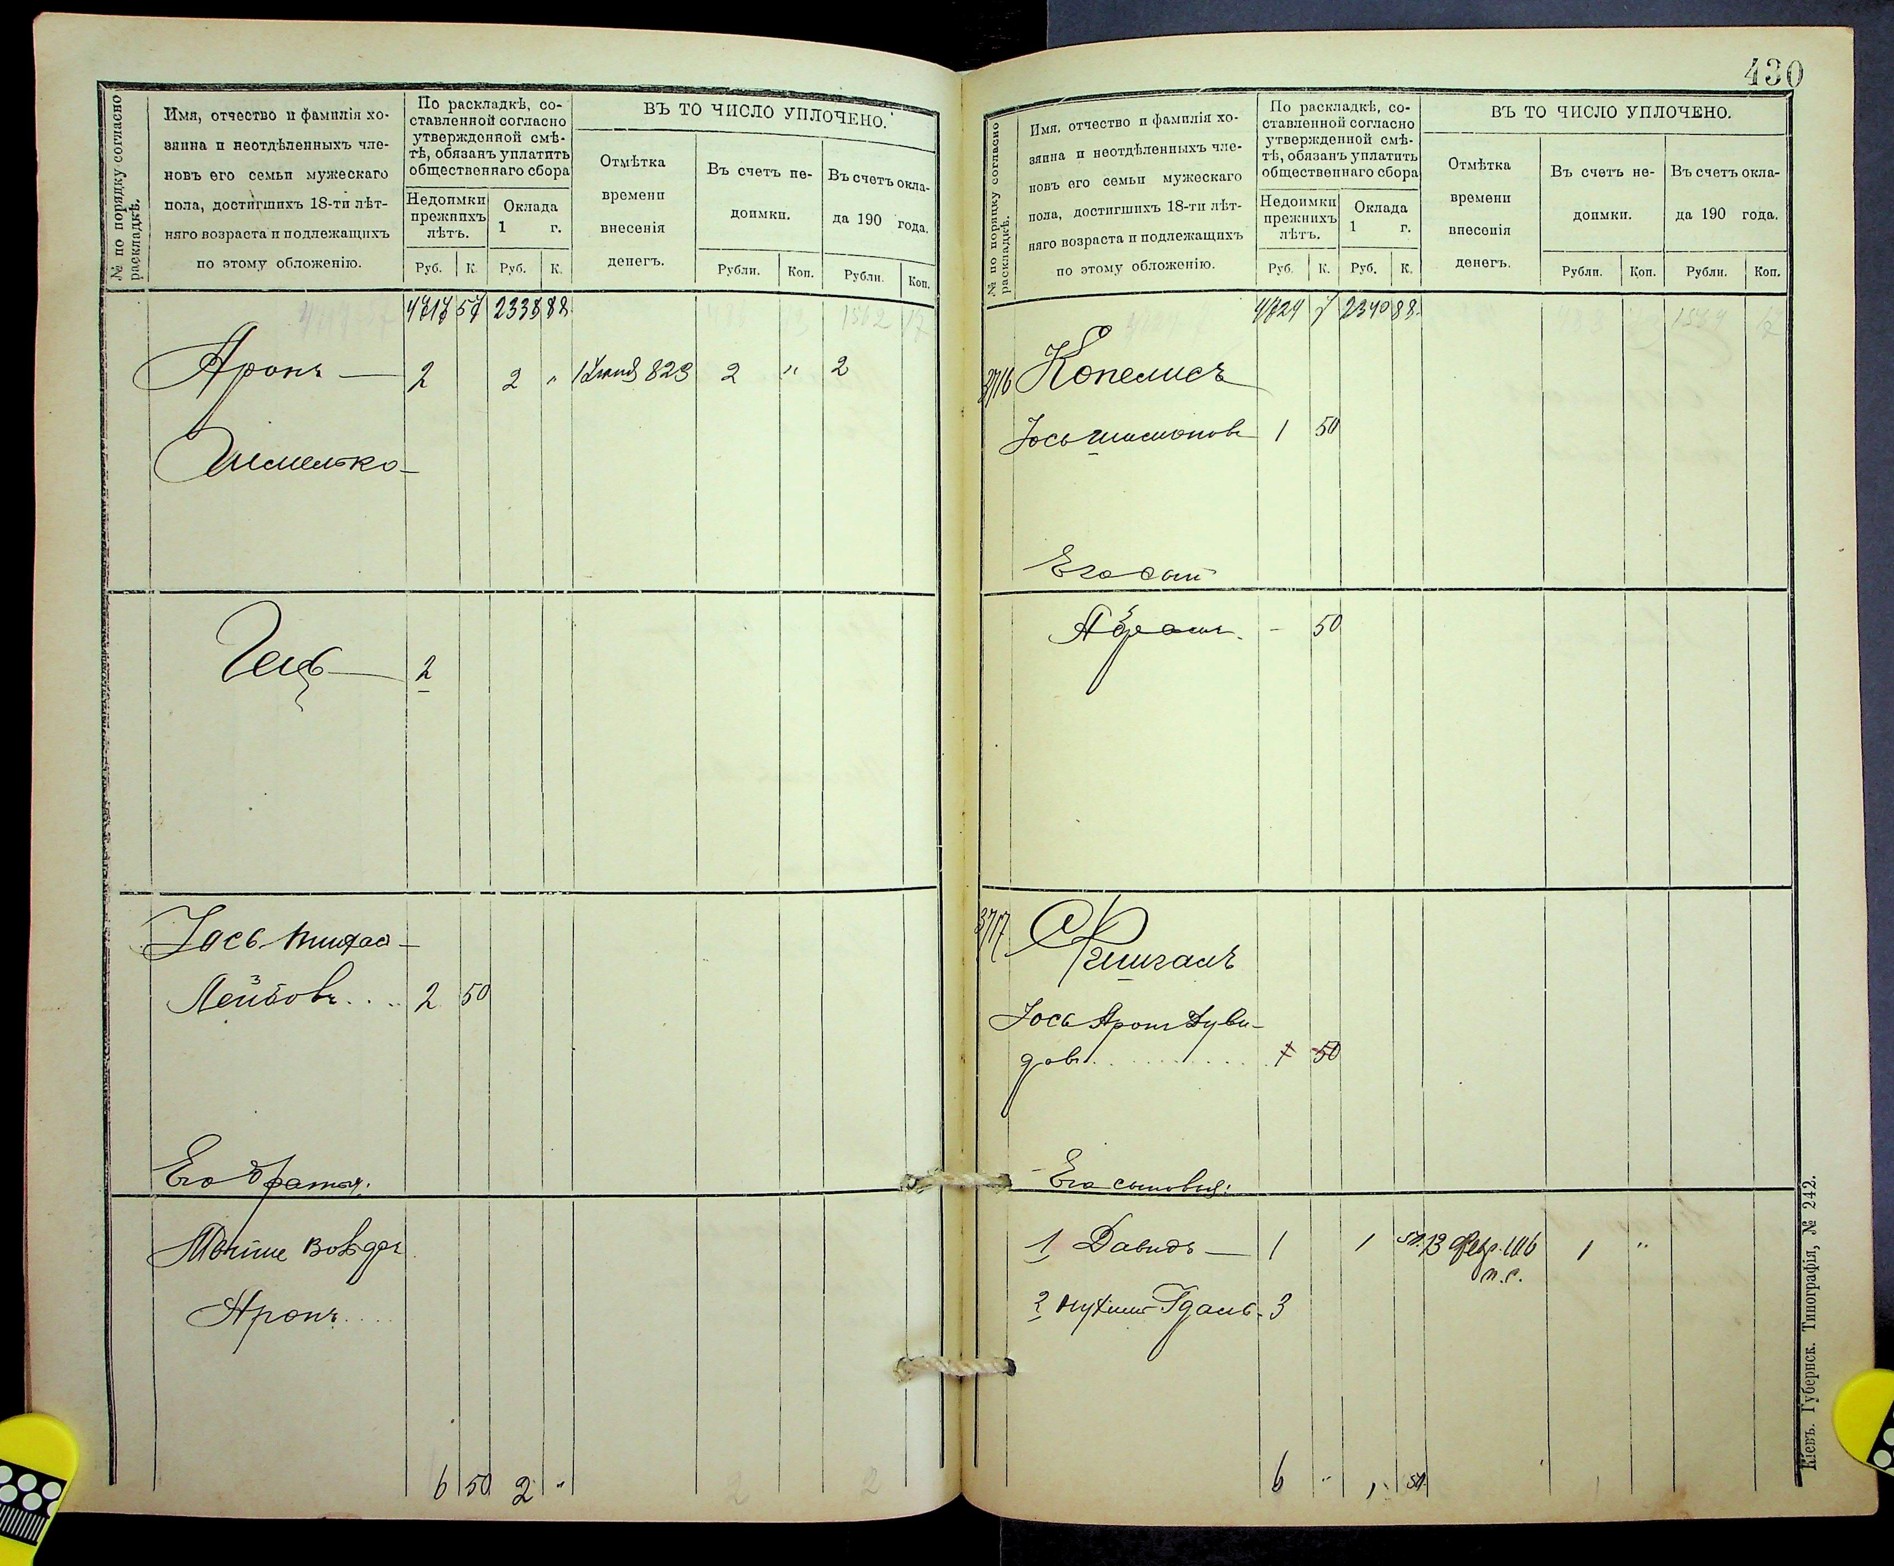 430
№ по порядку согласно раскладкѣ.
Имя, отчество и фамилія хо-
зяина и неотдѣленныхъ чле-
новъ его семьи мужескаго
пола, достигшихъ 18-ти лѣт-
няго возраста и подлежащихъ
по этому обложенію.
По раскладкѣ, со-
ставленной согласно
утвержденной смѣ-
тѣ, обязанъ уплатить
общественнаго сбора
Недоимки прежнихъ лѣтъ.
Оклада 1 г.
Руб. К. Руб. К.
ВЪ ТО ЧИСЛО УПЛОЧЕНО.
Отмѣтка
времени
внесенія
денегъ.
Въ счетъ не-
доимки.
Въ счетъ окла-
да 190 года.
Рубли. Коп. Рубли. Коп.
4717 57 2338 88
Аронъ — 2 2 " 823 2 " 2
Шмелько
2
Іось
Лейбовъ . . . 2 50
Его братья:
Аронъ . . . .
6 50 2 "
№ по порядку согласно раскладкѣ.
Имя, отчество и фамилія хо-
зяина и неотдѣленныхъ чле-
новъ его семьи мужескаго
пола, достигшихъ 18-ти лѣт-
няго возраста и подлежащихъ
по этому обложенію.
По раскладкѣ, со-
ставленной согласно
утвержденной смѣ-
тѣ, обязанъ уплатить
общественнаго сбора
Недоимки прежнихъ лѣтъ.
Оклада 1 г.
Руб. К. Руб. К.
ВЪ ТО ЧИСЛО УПЛОЧЕНО.
Отмѣтка
времени
внесенія
денегъ.
Въ счетъ не-
доимки.
Въ счетъ окла-
да 190 года.
Рубли. Коп. Рубли. Коп.
4724 7 2340 88
3716 Копелисъ
Іось Шимоновъ 1 50
Его сын
Абрамъ. - 50
3717 Фишгалъ
Іось Аронъ Дуви-
довъ . . . . . 1 50
Его сыновья:
1 Давидъ — 1 1 50 13 1 "
2 3
6 " 1 50
Кіевъ. Губернск. Типографія, № 242.